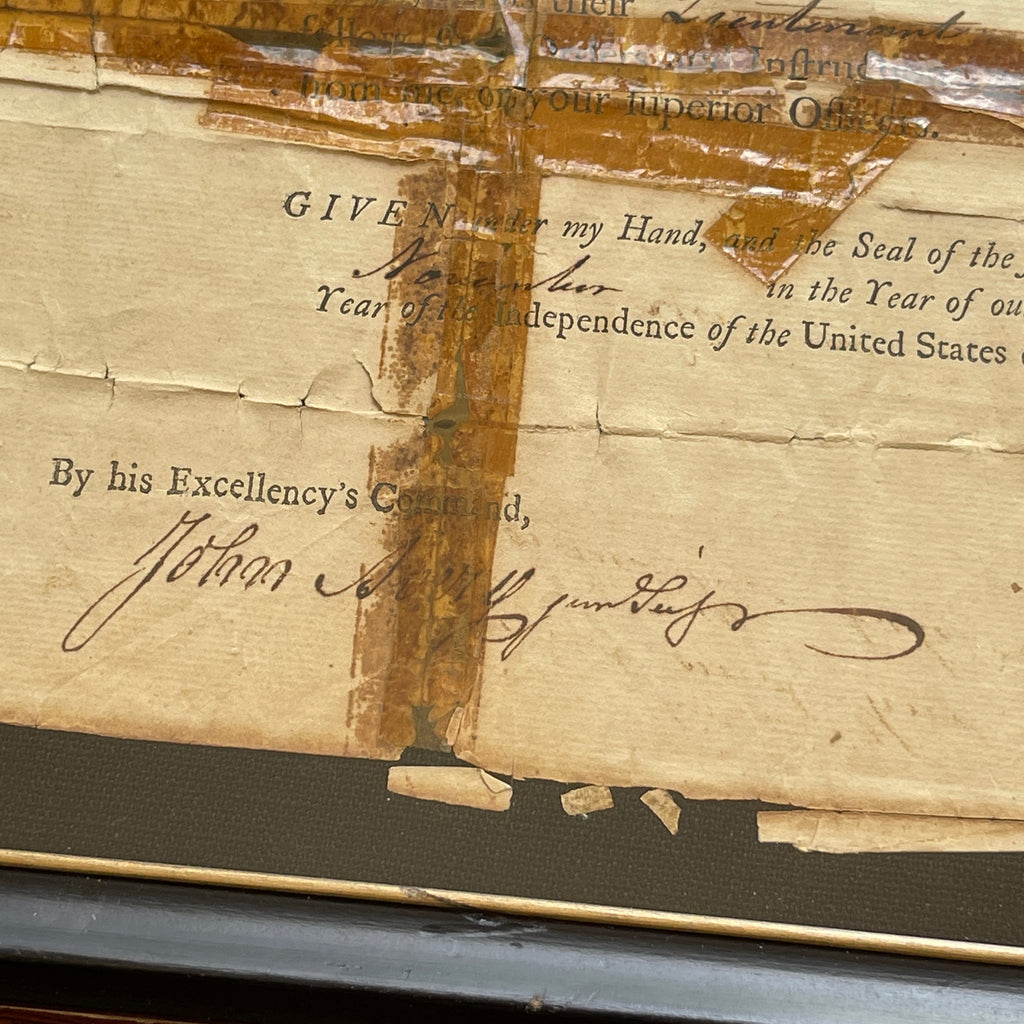 their Lieutenant
follow Instruc
from me, or your superior Officers.
GIVEN under my Hand, and the Seal of the
November in the Year of ou
Year of the Independence of the United States
By his Excellency's Command,
John Avery jun Secy